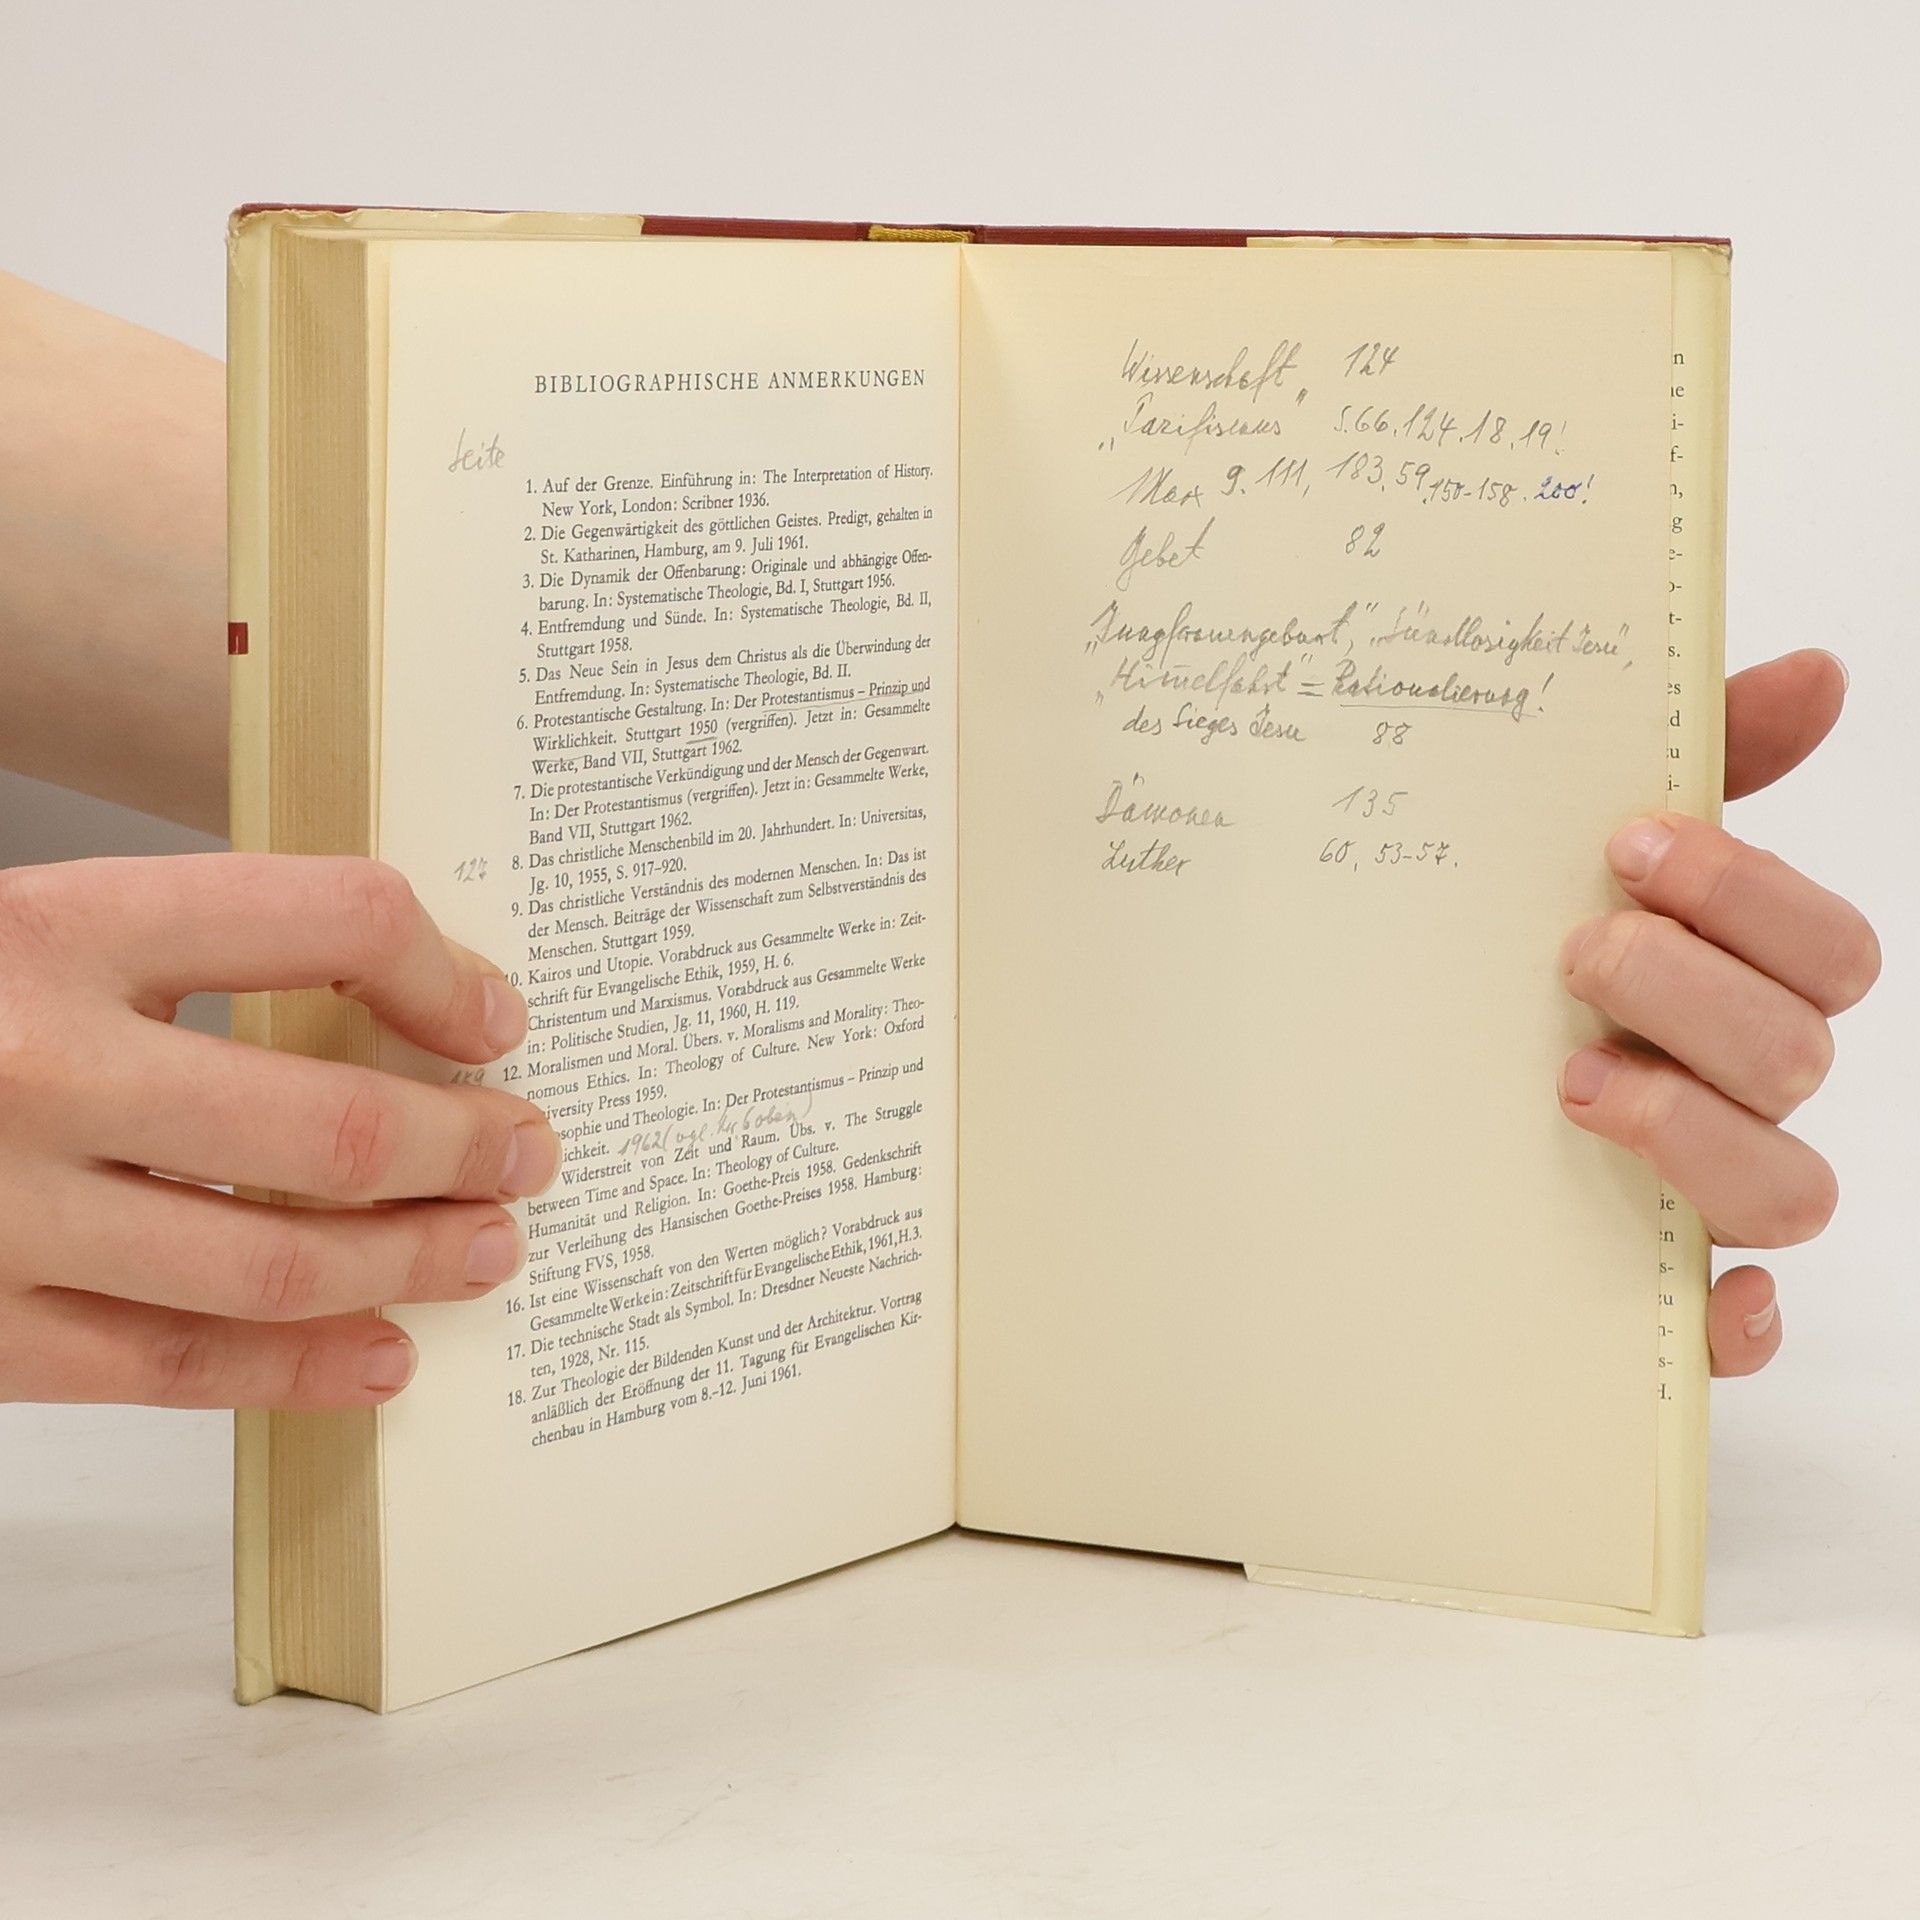 BIBLIOGRAPHISCHE ANMERKUNGEN
Seite
1. Auf der Grenze. Einführung in: The Interpretation of History.
New York, London: Scribner 1936.
2. Die Gegenwärtigkeit des göttlichen Geistes. Predigt, gehalten in
St. Katharinen, Hamburg, am 9. Juli 1961.
3. Die Dynamik der Offenbarung: Originale und abhängige Offen-
barung. In: Systematische Theologie, Bd. I, Stuttgart 1956.
4. Entfremdung und Sünde. In: Systematische Theologie, Bd. II,
Stuttgart 1958.
5. Das Neue Sein in Jesus dem Christus als die Überwindung der
Entfremdung. In: Systematische Theologie, Bd. II.
6. Protestantische Gestaltung. In: Der Protestantismus – Prinzip und
Wirklichkeit. Stuttgart 1950 (vergriffen). Jetzt in: Gesammelte
Werke, Band VII, Stuttgart 1962.
7. Die protestantische Verkündigung und der Mensch der Gegenwart.
In: Der Protestantismus (vergriffen). Jetzt in: Gesammelte Werke,
Band VII, Stuttgart 1962.
127 8. Das christliche Menschenbild im 20. Jahrhundert. In: Universitas,
Jg. 10, 1955, S. 917–920.
9. Das christliche Verständnis des modernen Menschen. In: Das ist
der Mensch. Beiträge der Wissenschaft zum Selbstverständnis des
Menschen. Stuttgart 1959.
10. Kairos und Utopie. Vorabdruck aus Gesammelte Werke in: Zeit-
schrift für Evangelische Ethik, 1959, H. 6.
Christentum und Marxismus. Vorabdruck aus Gesammelte Werke
in: Politische Studien, Jg. 11, 1960, H. 119.
12. Moralismen und Moral. Übers. v. Moralisms and Morality: Theo-
nomous Ethics. In: Theology of Culture. New York: Oxford
iversity Press 1959.
sophie und Theologie. In: Der Protestantismus – Prinzip und
ichkeit. 1962 (vgl. Nr. 6 oben)
Widerstreit von Zeit und Raum. Übs. v. The Struggle
between Time and Space. In: Theology of Culture.
Humanität und Religion. In: Goethe-Preis 1958. Gedenkschrift
zur Verleihung des Hansischen Goethe-Preises 1958. Hamburg:
Stiftung FVS, 1958.
16. Ist eine Wissenschaft von den Werten möglich? Vorabdruck aus
Gesammelte Werke in: Zeitschrift für Evangelische Ethik, 1961, H. 3.
17. Die technische Stadt als Symbol. In: Dresdner Neueste Nachrich-
ten, 1928, Nr. 115.
18. Zur Theologie der Bildenden Kunst und der Architektur. Vortrag
anläßlich der Eröffnung der 11. Tagung für Evangelischen Kir-
chenbau in Hamburg vom 8.–12. Juni 1961.
Wissenschaft 124
„Pazifismus" S. 66, 124, 18, 19!
Marx 9. 111, 183, 59, 150-158. 200!
Gebet 82
„Jungfrauengeburt", „Sündlosigkeit Jesu",
„Himmelfahrt" = Rationalierung!
des Sieges Jesu 88
Dämonen 135
Luther 60, 53-57.